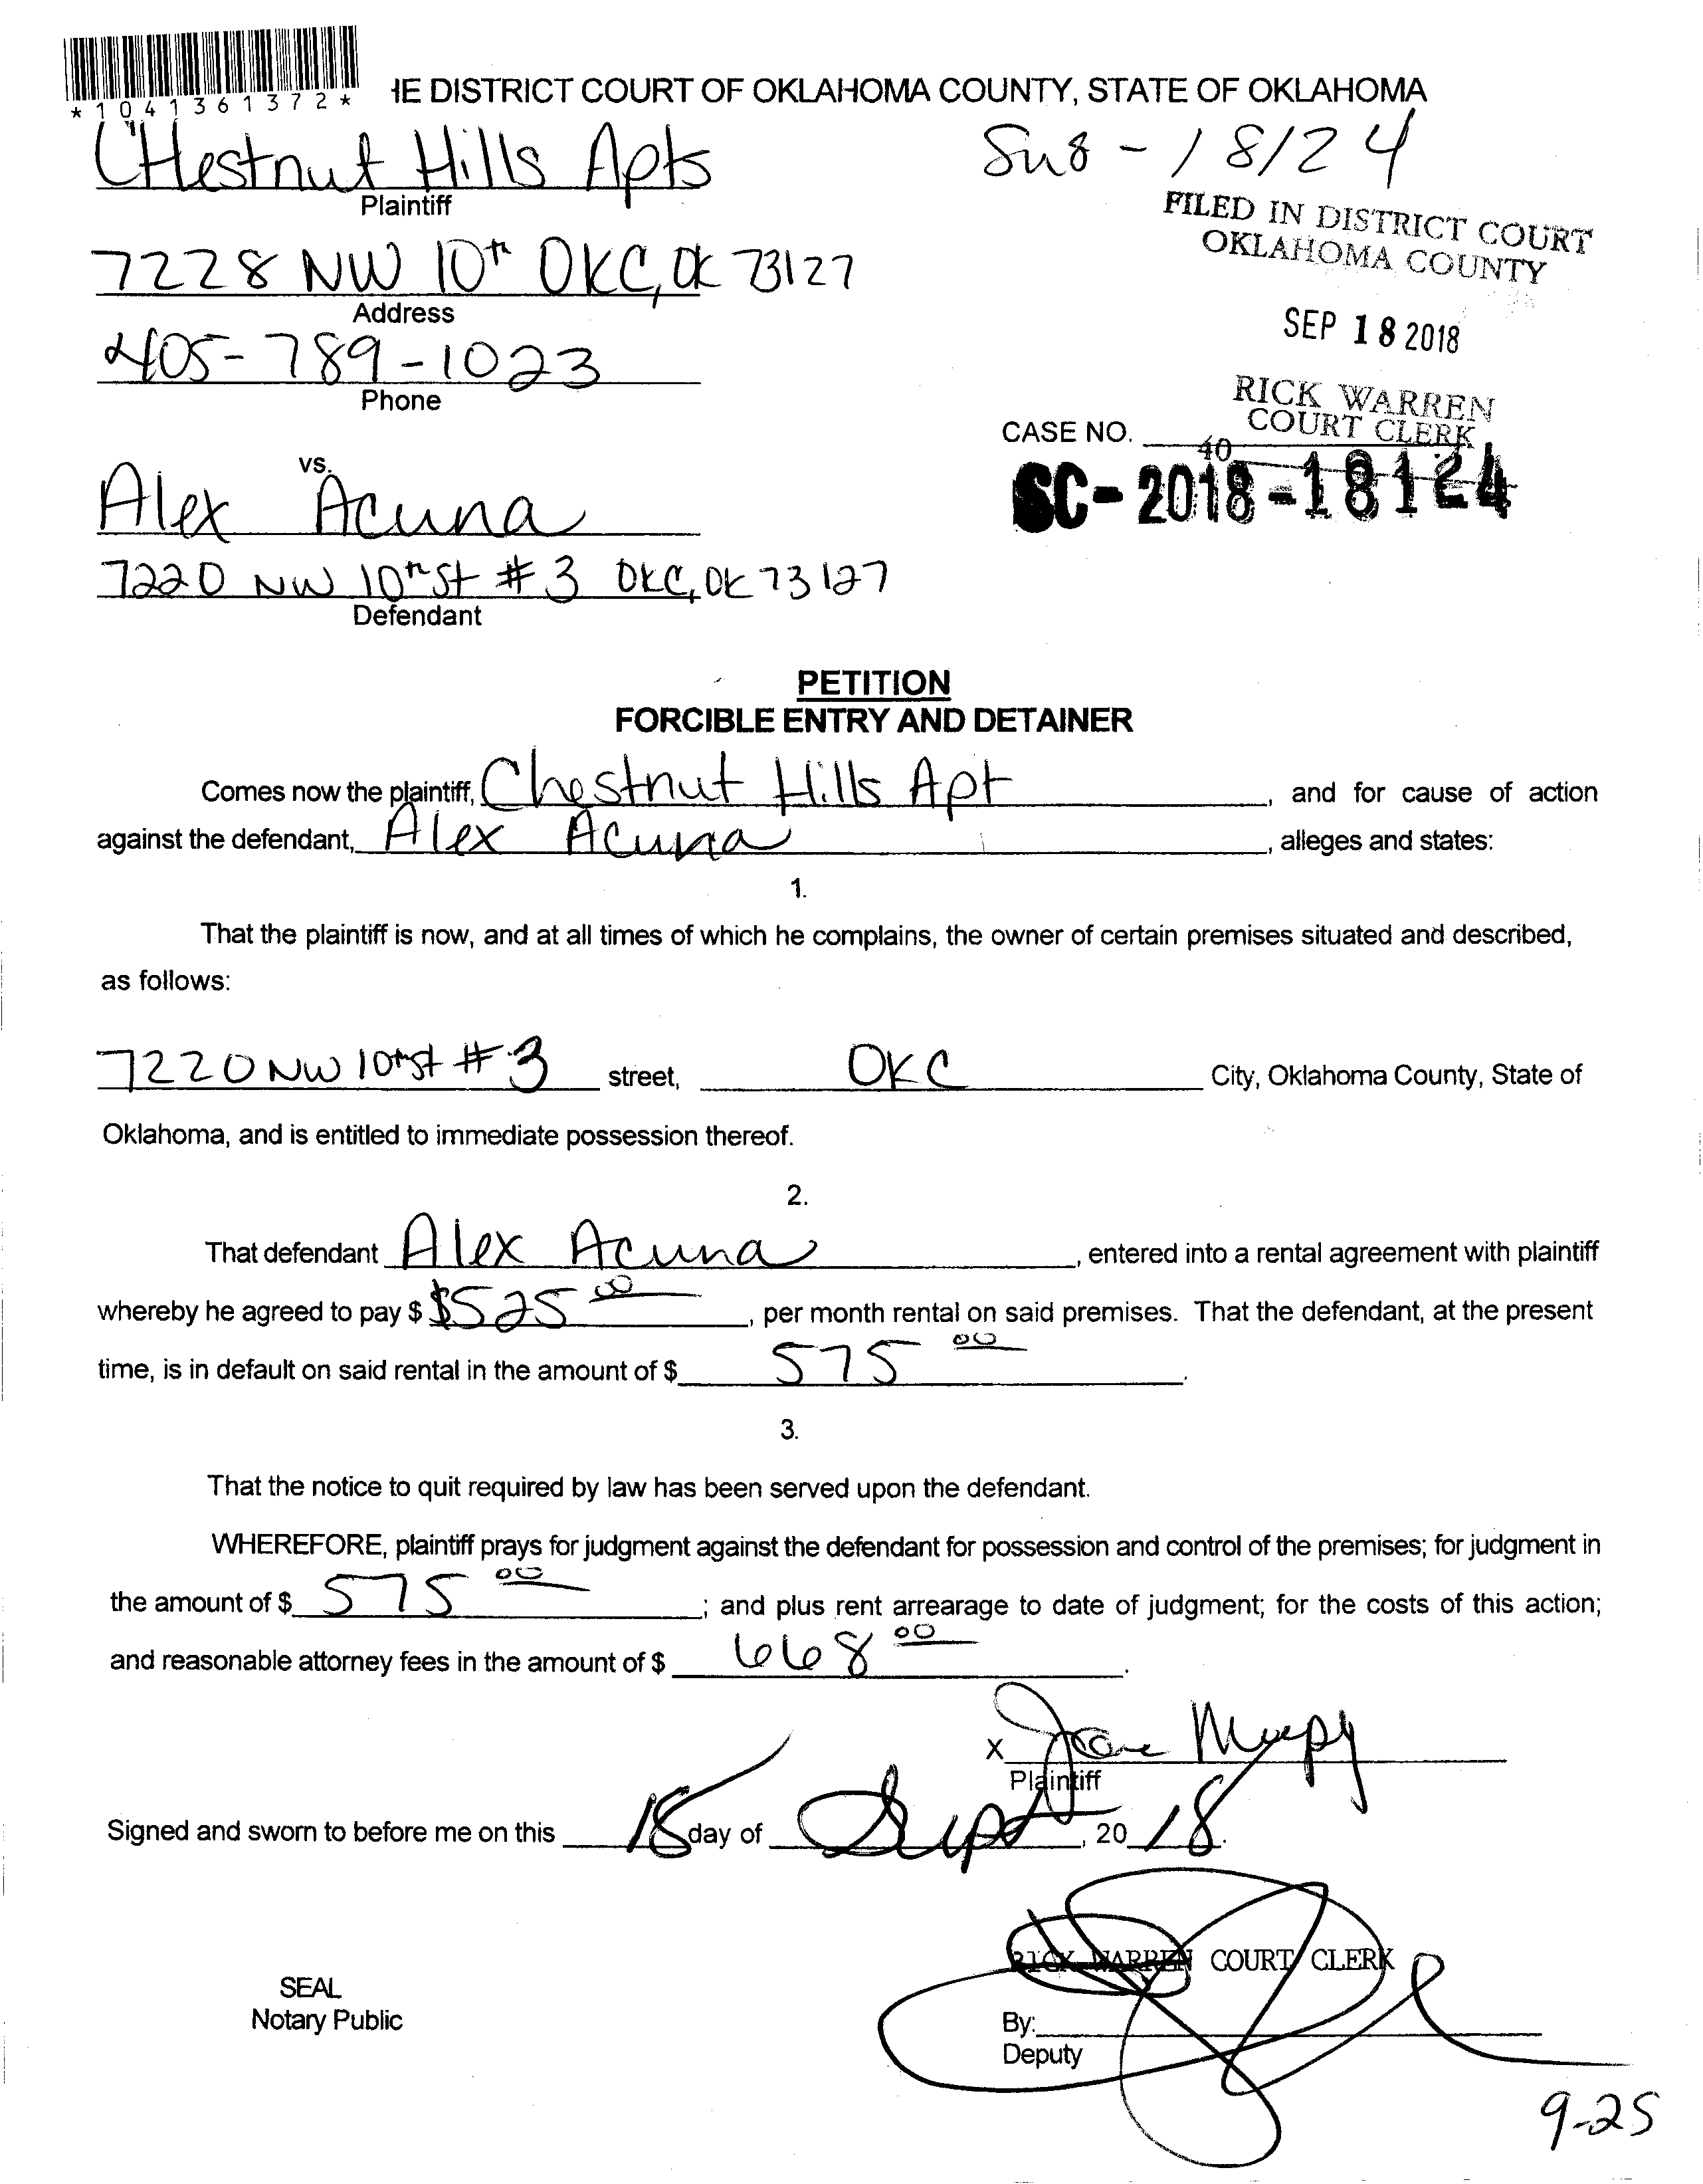 *1041361372*
HE DISTRICT COURT OF OKLAHOMA COUNTY, STATE OF OKLAHOMA
CHestnut Hills Apts
Plaintiff
18124
FILED IN DISTRICT COURT
OKLAHOMA COUNTY
7228 NW 10th OKC, OK 73127
Address
SEP 18 2018
405-789-1023
Phone
RICK WARREN
COURT CLERK
CASE NO.
40
SC-2018-18124
vs.
Alex Acuna
7220 NW 10th St #3 OKC, OK 73127
Defendant
PETITION
FORCIBLE ENTRY AND DETAINER
Comes now the plaintiff, Chestnut Hills Apt, and for cause of action
against the defendant, Alex Acuna, alleges and states:
1.
That the plaintiff is now, and at all times of which he complains, the owner of certain premises situated and described,
as follows:
7220 NW 10th st #3 street, OKC City, Oklahoma County, State of
Oklahoma, and is entitled to immediate possession thereof.
2.
That defendant Alex Acuna, entered into a rental agreement with plaintiff
whereby he agreed to pay $ $525 00, per month rental on said premises. That the defendant, at the present
time, is in default on said rental in the amount of $ 575 00.
3.
That the notice to quit required by law has been served upon the defendant.
WHEREFORE, plaintiff prays for judgment against the defendant for possession and control of the premises; for judgment in
the amount of $ 575 00; and plus rent arrearage to date of judgment; for the costs of this action;
and reasonable attorney fees in the amount of $ 668 00.
X
Plaintiff
Signed and sworn to before me on this 18 day of Sept, 20 18.
RICK WARREN COURT CLERK
SEAL
Notary Public
By:
Deputy
9-25